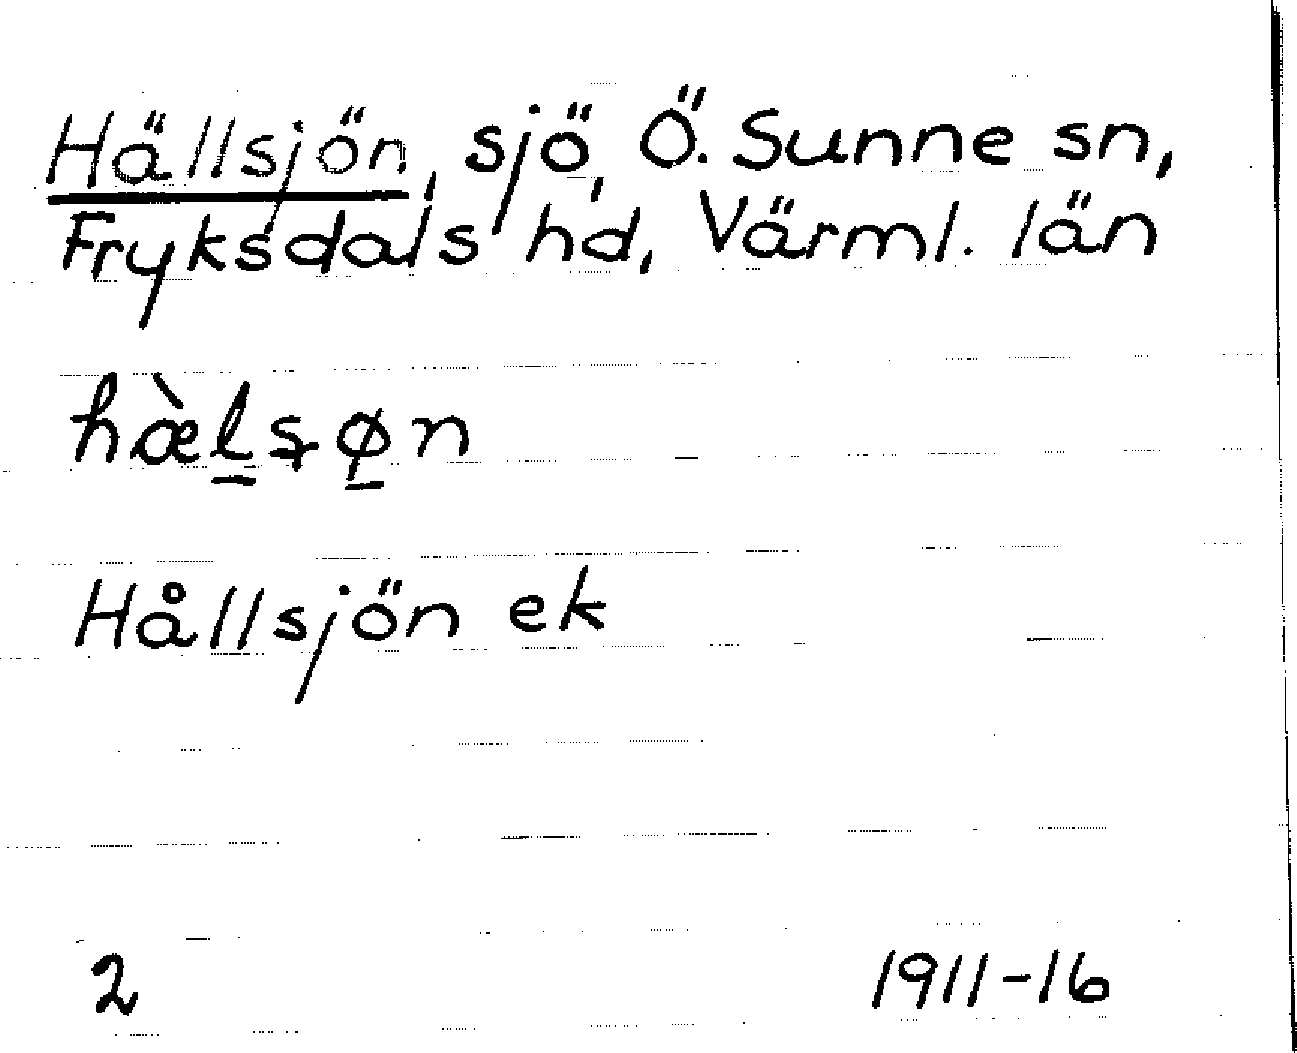 Hällsjön, sjö, Ö. Sunne sn,
Fryksdals hd, Värml. län
hæ̀l̠ʂø̠n
Hållsjön ek
2 1911-16